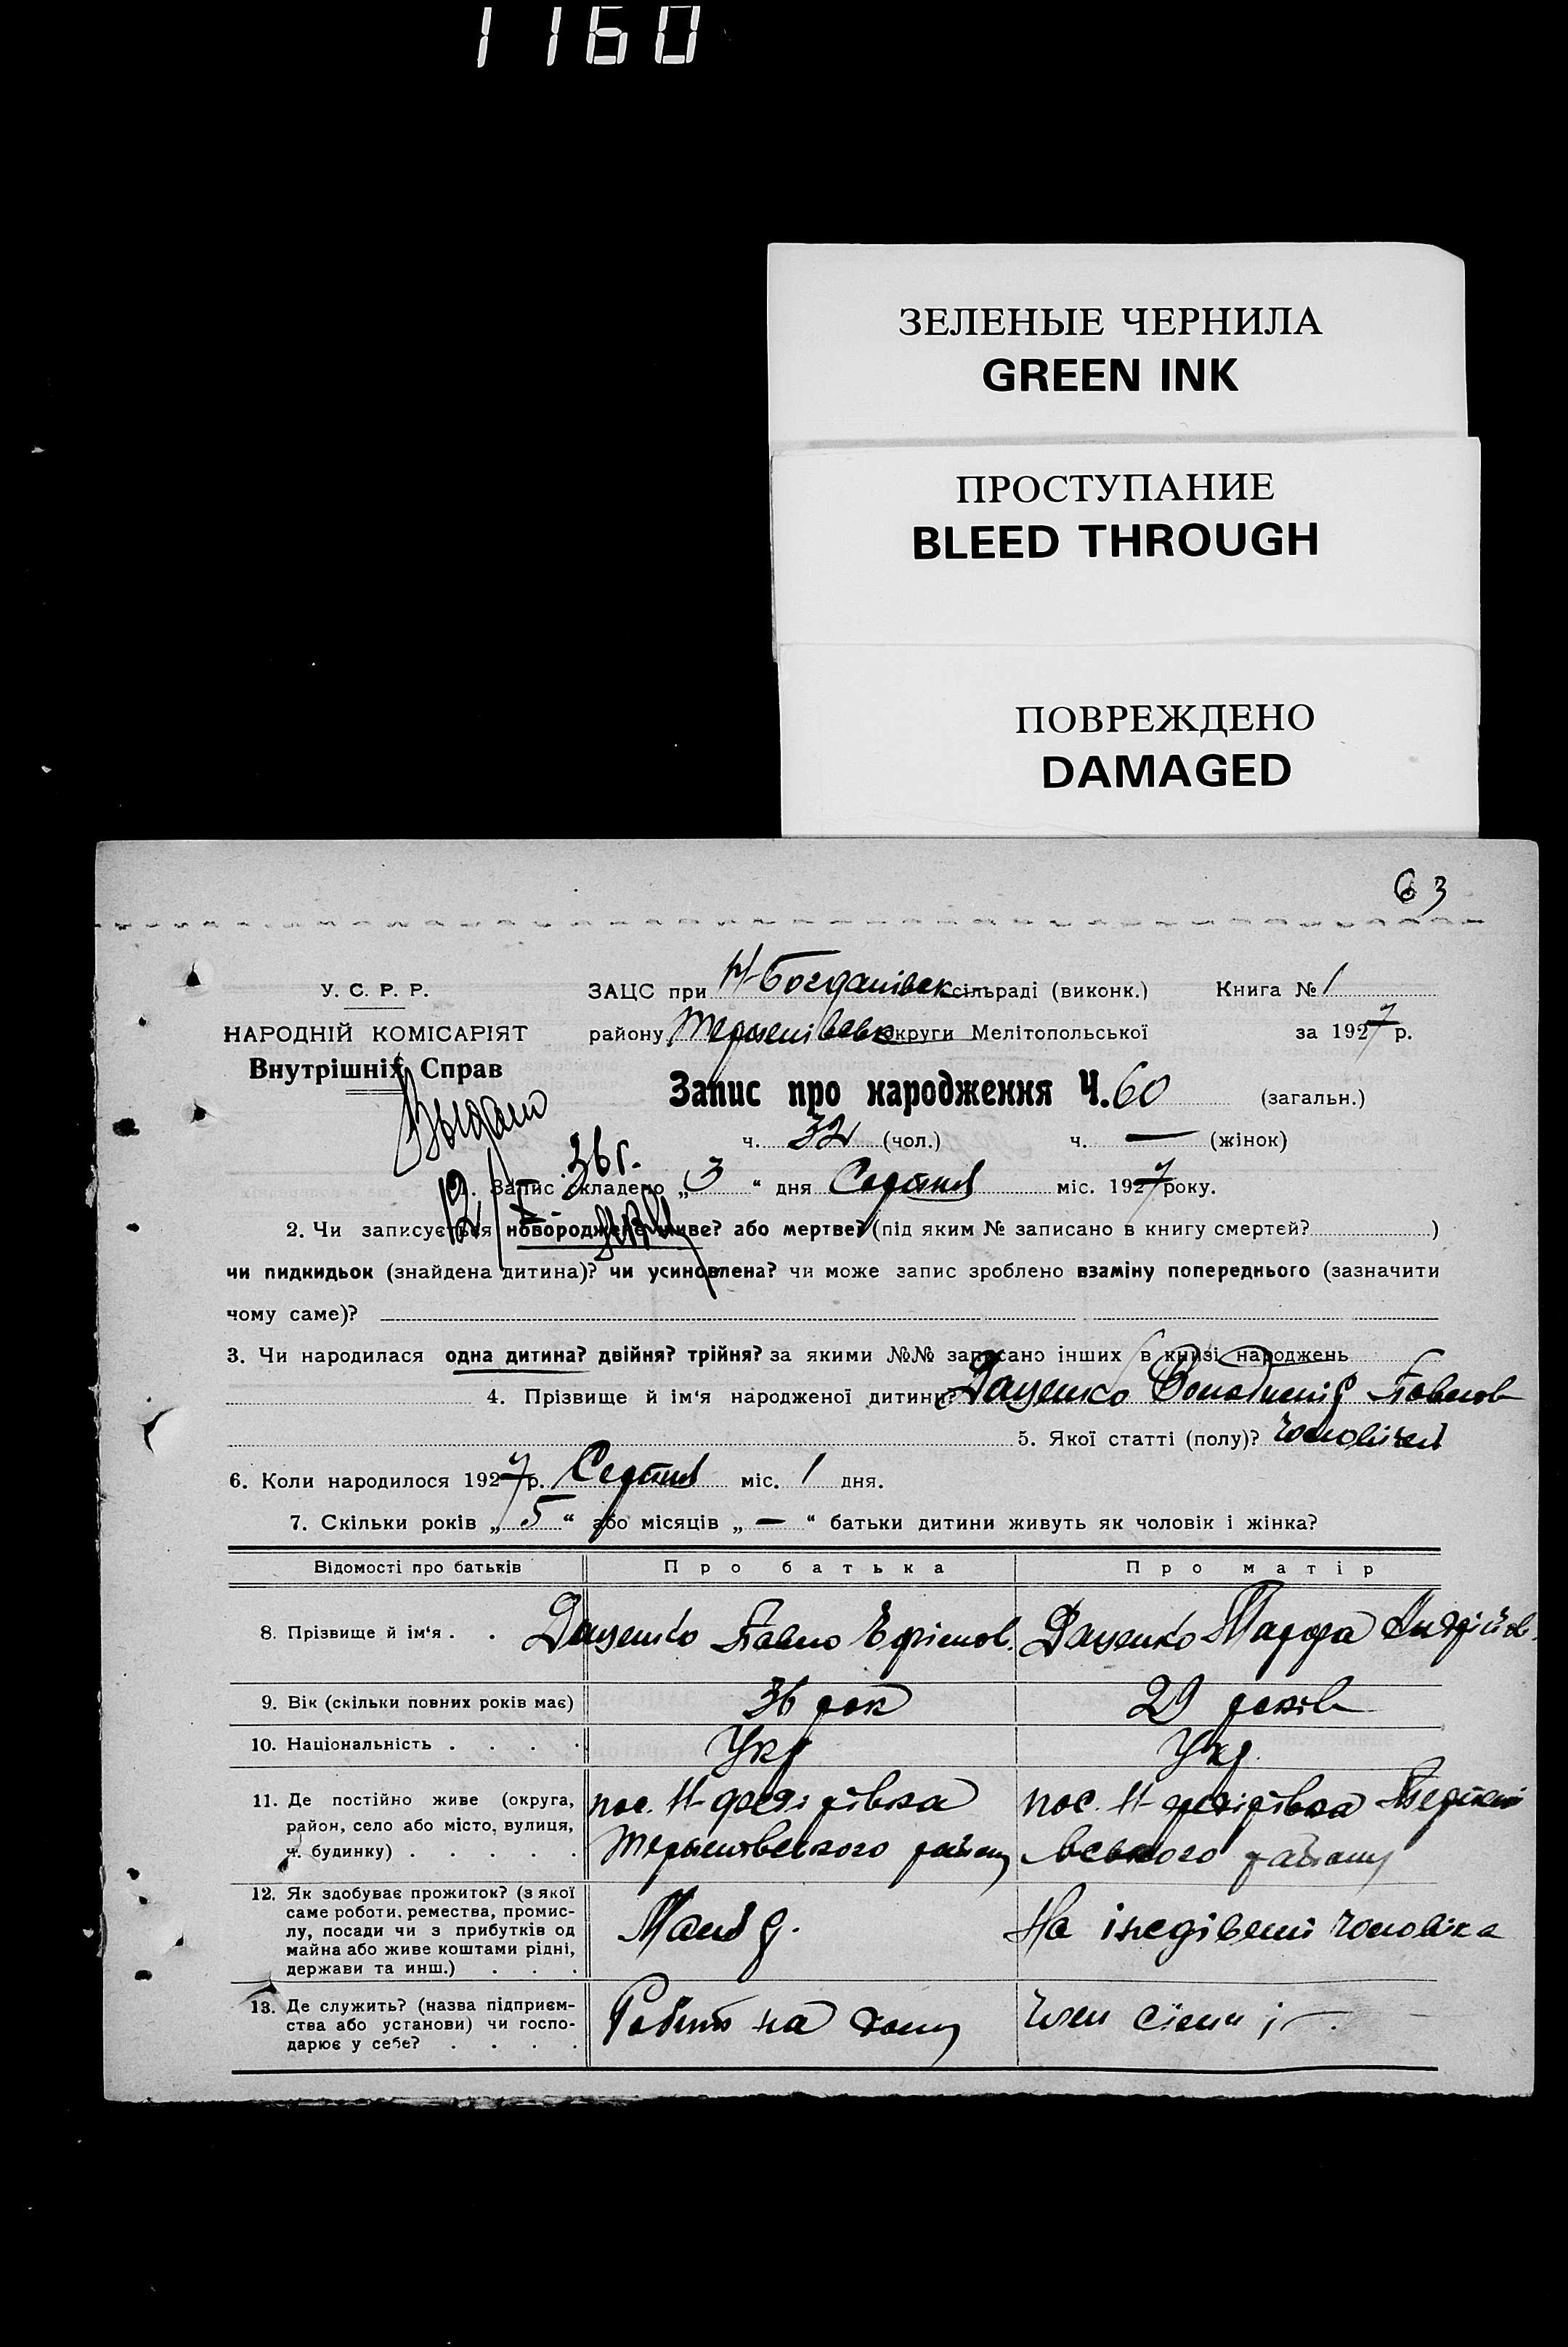 1160
ЗЕЛЕНЫЕ ЧЕРНИЛА
GREEN INK
ПРОСТУПАНИЕ
BLEED THROUGH
ПОВРЕЖДЕНО
DAMAGED
63
У. С. Р. Р.
НАРОДНІЙ КОМІСАРІЯТ
Внутрішніх Справ
ЗАЦС при Н-Богданівск сільраді (виконк.) Книга № 1
району округи Мелітопольської за 1927 р.
Запис про народження Ч. 60 (загальн.)
Выдано
36 г.
ч. 32 (чол.) ч. — (жінок)
1. Запис складено „3“ дня Серпня міс. 1927 року.
2. Чи записується новороджене живе? або мертве? (під яким № записано в книгу смертей? )
чи пидкидьок (знайдена дитина)? чи усиновлена? чи може запис зроблено взаміну попереднього (зазначити
чому саме)?
3. Чи народилася одна дитина? двійня? трійня? за якими №№ записано інших в книзі народжень
4. Прізвище й ім'я народженої дитини? Даценко Володимір Павлов
5. Якої статті (полу)? чоловічеі
6. Коли народилося 1927 р. Серпня міс. 1 дня.
7. Скільки років „5“ або місяців „—“ батьки дитини живуть як чоловік і жінка?
Відомості про батьків Про батька Про матір
8. Прізвище й ім'я . . Даценко Павло Єфімов. Даценко Марфа Андрійов.
9. Вік (скільки повних років має) 36 рок 29 років
10. Національність . . . . Укр Укр.
11. Де постійно живе (округа,
район, село або місто, вулиця,
ч. будинку) . . . . .
пос. Н- району
пос. Н- району
12. Як здобуває прожиток? (з якої
саме роботи, ремества, промис-
лу, посади чи з прибутків од
майна або живе коштами рідні,
держави та инш.) . . .
Маляр.
На чоловіка
13. Де служить? (назва підприєм-
ства або установи) чи госпо-
дарює у себе? . . . .
на дому
член сіем'і —.